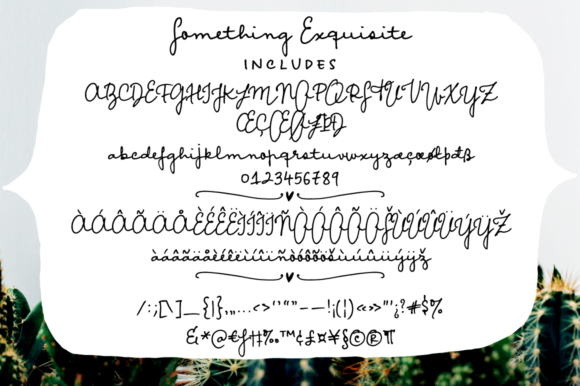 Something Exquisite
INCLUDES
ABCDEFGHIJKLMNOPQRSTUVWXYZ
ŒÇŒØŁÞÐ
abcdefghijklmnopqrstuvwxyzæçœøłþđß
0123456789
ÀÁÂÃÄÅÈÉÊËÌÍÎÏÑÒÓÔÕÖŠÙÚÛÜÝŸŽ
àáâãäåèéêëìíîïñòóôõöšùúûüýÿž
/:;[\]__{|}‚„…‹›‘’“”–—!¡(¦)«»"'¿?#$%
&*@€ƒ†‡‰™¢£¤¥§©®¶